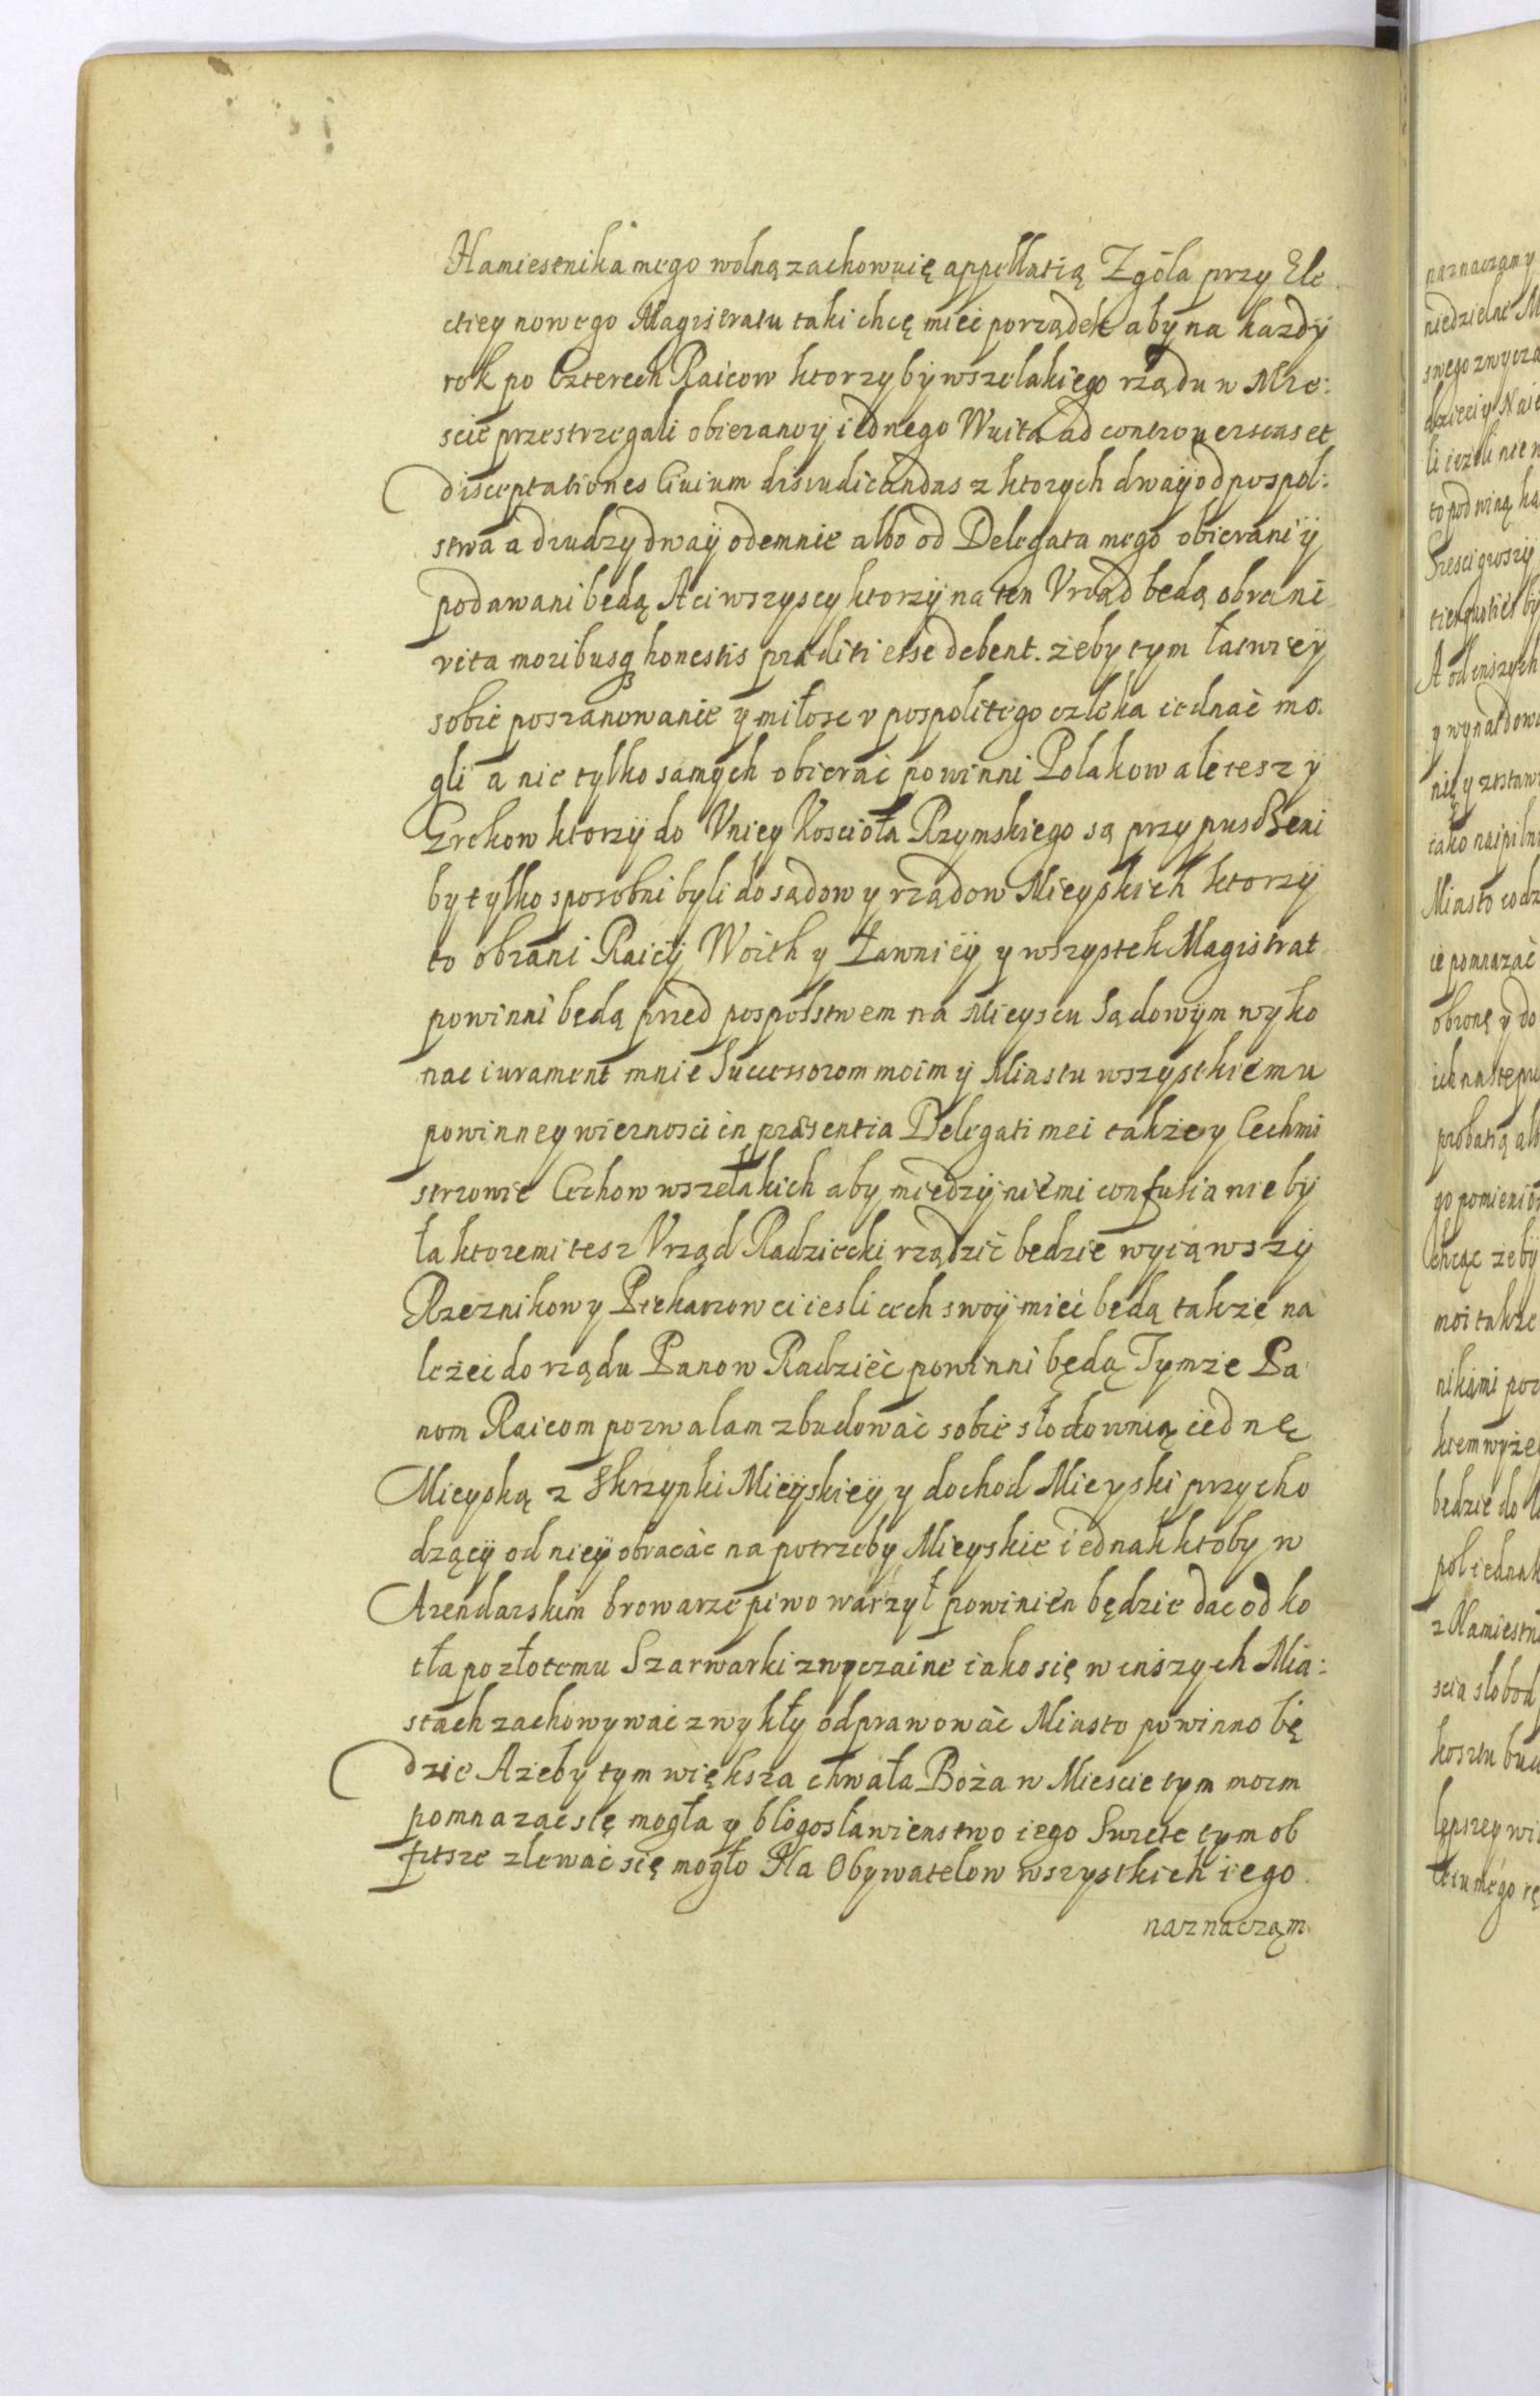 Namiesnika mego wolną zachowuię appellatią Zgoła przy Ele
ctiey nowego Magistratu taki chcę miec porządek aby na kazdÿ
rok po Czterech Raicow ktorzy bÿ wszelakiego rządu w Mie:
scie przestrzegali obierano ÿ iednego Wuita ad controuersias et
disceptationes Ciuium diiudicandas z ktorych dwaÿ od pospol:
stwa a drudzy dwaÿ odemnie albo od Delegata mego obierani ÿ
podawani będą A ci wszyscy ktorzÿ na ten Vrząd będą obrani
vita moribusq honestis præditi esse debent. żeby tym łatwieÿ
sobie poszanowanie y miłosc v pospolitego człeka iednać mo:
gli a nie tylko samych obierać powinni Polakow ale tesz ÿ
Grekow ktorzÿ do Vniey Koscioła Rzymskiego są przypuszczeni
by tylko sposobni byli do sądow y rządow Mieyskich ktorzÿ
to obrani Raicÿ Woith y Ławnicÿ y wszystek Magistrat
powinni będą przed pospolstwem na Mieyscu Sądowÿm wyko
nac iurament mnie Successorom moim ÿ Miastu wszystkiemu
powinney wiernosci in præsentia Delegati mei takzey Cechmi
strzowie Cechow wszelakich aby miedzÿ niemi confusia nie bÿ
ła ktoremi tesz Vrząd Radziecki rządzić będzie wyiąwszÿ
Rzeznikow y Piekarzow ci iesli cech swoÿ miec będą takze na
lezec do rządu Panow Radziec powinni będą Tymze Pa
nom Raicom pozwalam zbudowac sobie słodownią iednę
Mieyską z Skrzynki Mieÿskieÿ y dochod Mieyski przycho
dzącÿ od nieÿ obracać na potrzeby Mieyskie iednak ktoby w
Arendarskim browarze piwo warzył powinien będzie dac od ko
tła po złotemu Szarwarki zwyczaine iako się w inszych Mia:
stach zachowywac zwykły odprawowac Miasto powinno bę
dzie Azeby tym większa chwała Boża w Miescie tym moim
pomnazac się mogła y błogosławienstwo iego Swiete tym ob
fitsze zlewać się mogło Na Obywatelow wszystkich iego
naznaczam
naznaczamy
niedzielne M
swego zwycza
dzieci y Na
li iezeli nie n
to pod winą
Szesci groszÿ
A od inszych
nię y zostaw
iako naipiln
Miasto co dz
ie pomnazać
obronę y do
probatią alb
go pomienio
chcąc ze bÿ
moi takze
nikami por
będzie do
pol iednak
z Namiestn
scia słobod
kosztu bud
lepszey wi